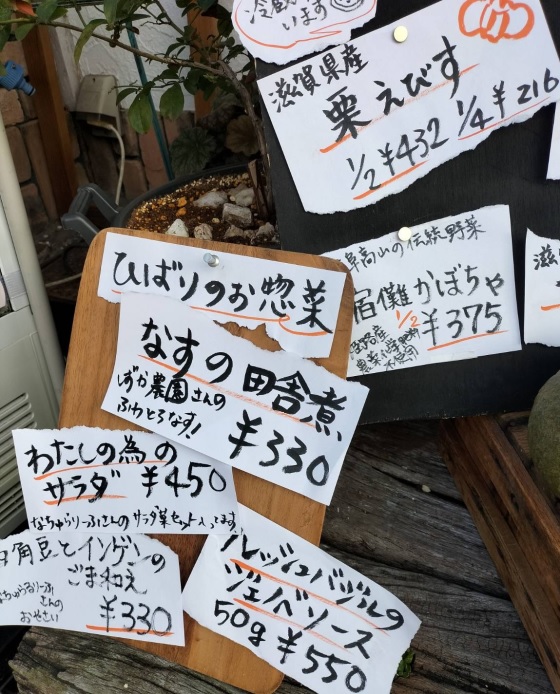 います
滋賀県産
栗えびす
1/2 ¥432 1/4 ¥216
阜高山の伝統野菜
宿儺かぼちゃ
1/2 ¥375
農薬化学肥料
不使用
滋
ひばりのお惣菜
なすの田舎煮
しずか農園さんの
ふわとろなす!
¥330
わたしの為の
サラダ ¥450
なちゅらりーふさんのサラダ菜セット入ってます
四角豆とインゲンの
ごま和え
なちゅらるりーふ
さんの
おやさい
¥330
フレッシュバジルの
ジェノベソース
50g ¥550